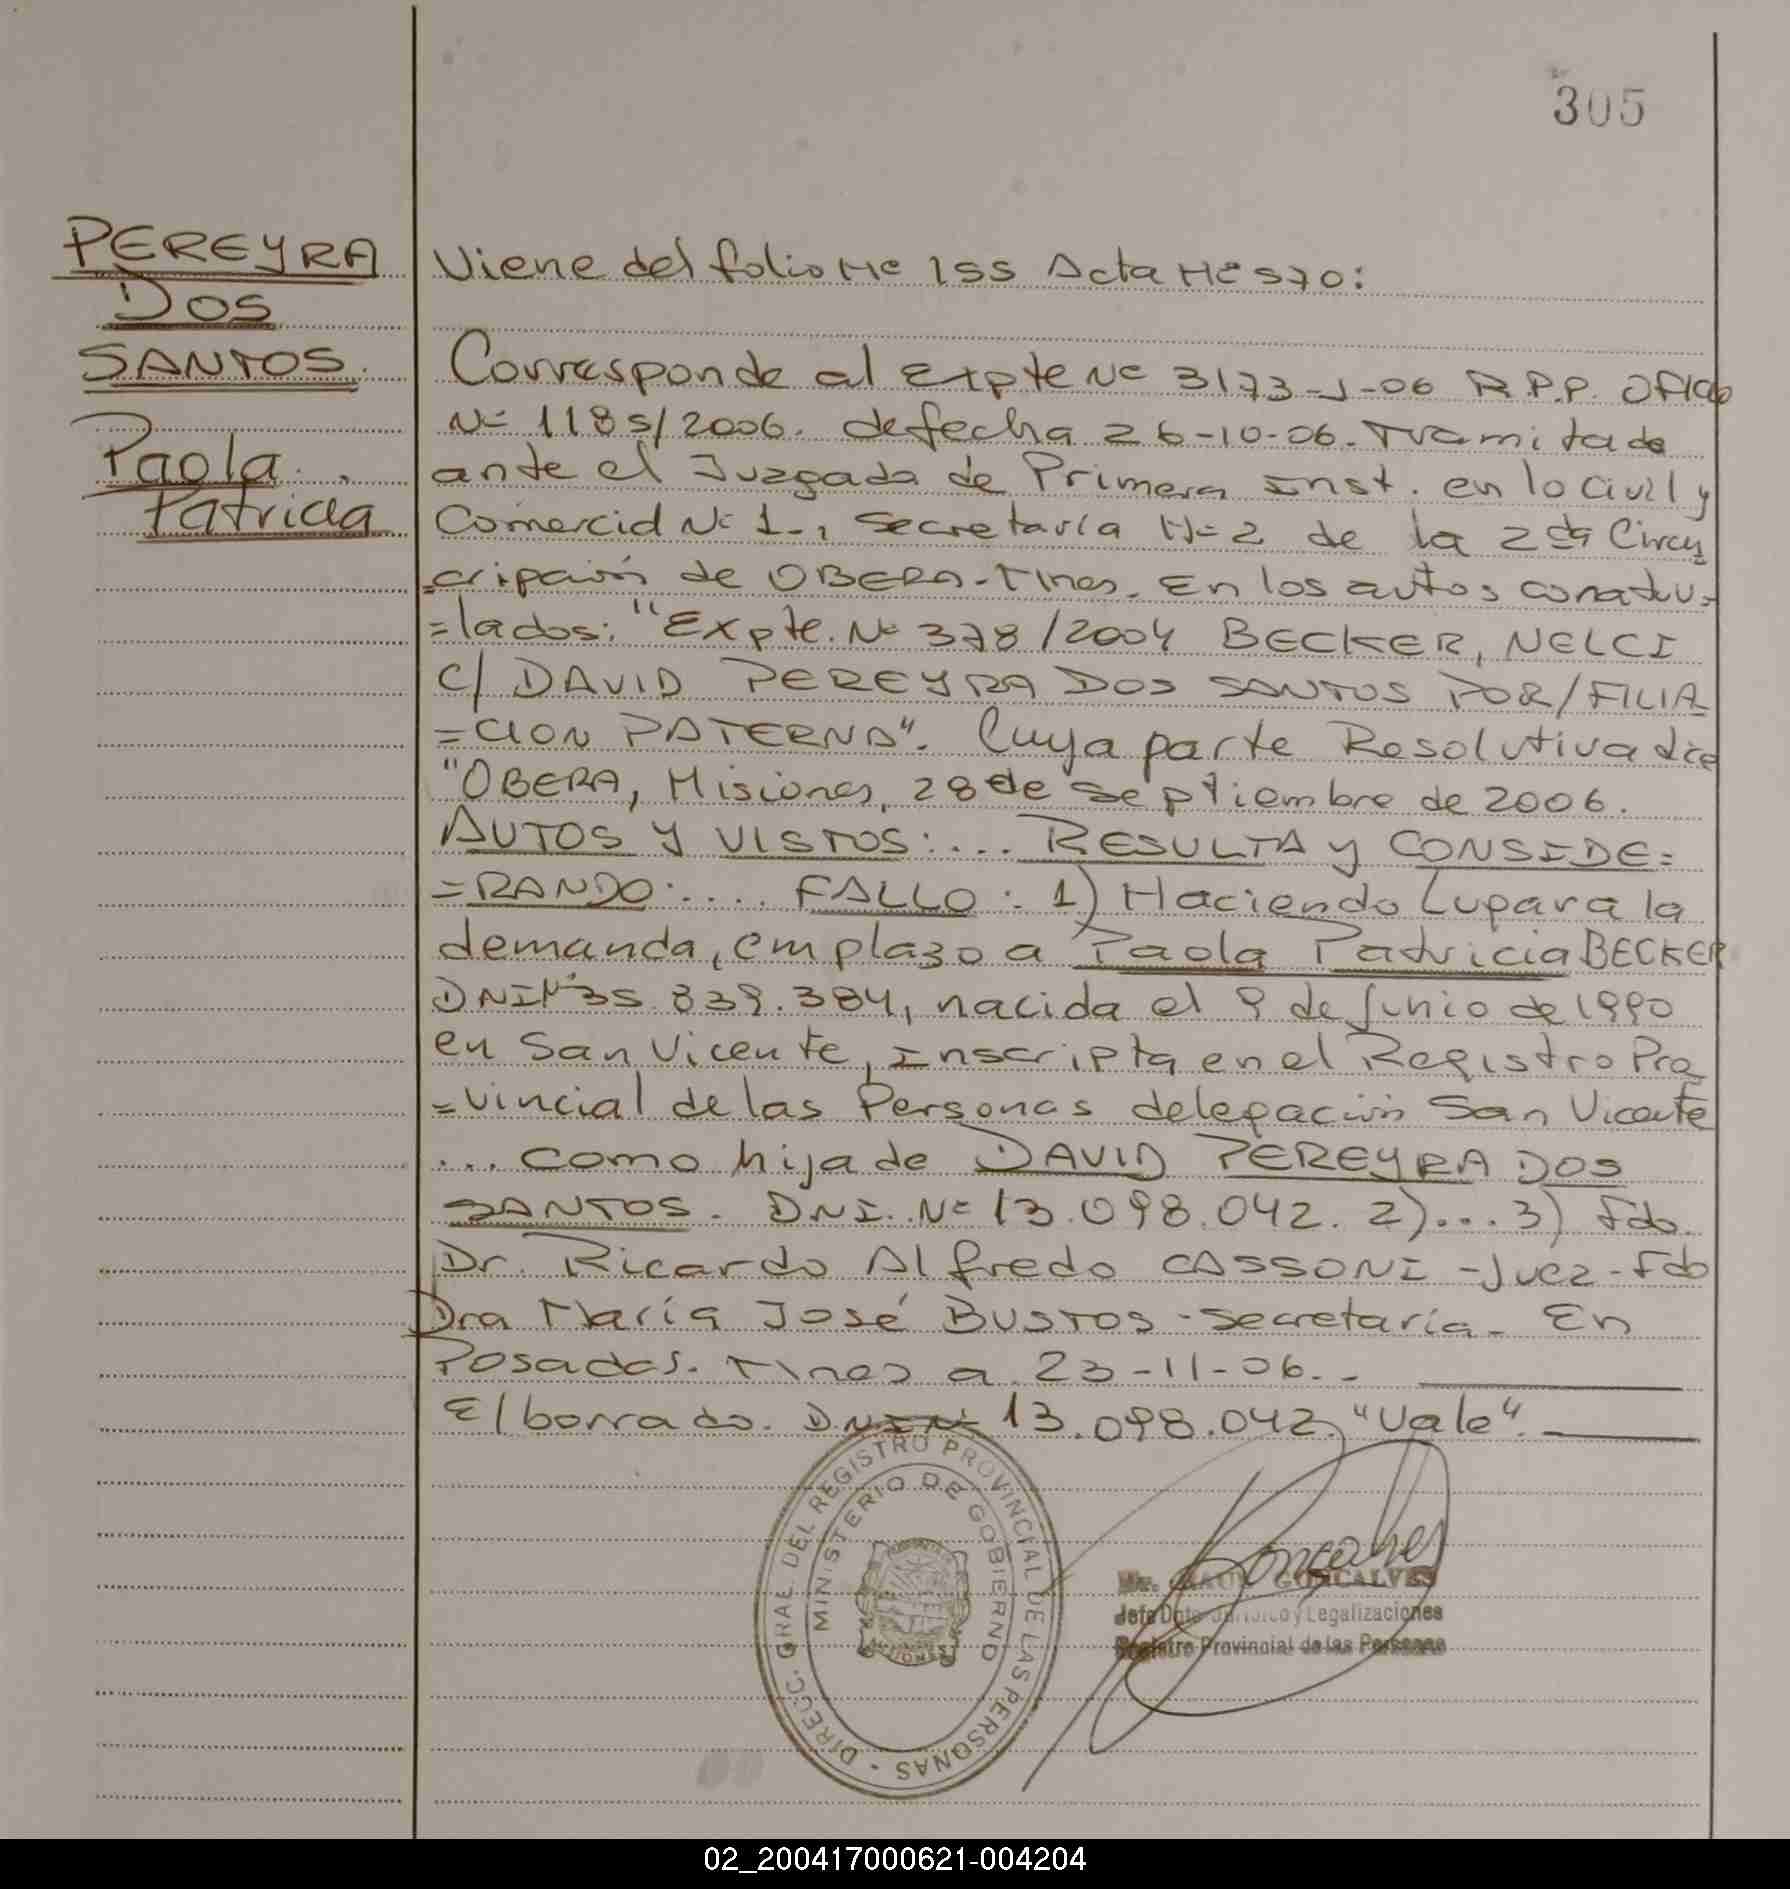 305
PEREYRA
DOS
SANTOS.
Paola
Patricia
Viene del folio Nº 155 Acta Nº 570:
Corresponde al Expte Nº 3173-J-06 R.P.P. Oficio
Nº 1185/2006. de fecha 26-10-06. Tramitado
ante el Juzgado de Primera Inst. en lo Civil y
Comercial Nº 1-, Secretaría Nº 2 de la 2da Circuns
=cripción de OBERA-Mnes. En los autos caratu=
=lados: "Expte. Nº 378/2004 BECKER, NELCI
C/ DAVID PEREYRA DOS SANTOS POR/FILIA
=CION PATERNA". Cuya parte Resolutiva dice
"OBERA, Misiones, 28 de Septiembre de 2006.
AUTOS Y VISTOS:... RESULTA y CONSIDE=
=RANDO:.... FALLO: 1) Haciendo Lugar a la
demanda, emplazo a Paola Patricia BECKER
DNI Nº 35.839.384, nacida el 9 de Junio de 1990
en San Vicente, Inscripta en el Registro Pro
=vincial de las Personas delegación San Vicente
... como hija de DAVID PEREYRA DOS
SANTOS. DNI. Nº 13.098.042. 2)...3) Fdo.
Dr. Ricardo Alfredo CASSONI -Juez- Fdo
Dra María José BUSTOS - Secretaria- En
Posadas. Mnes a 23-11-06.-
El borrado. DNI Nº 13.098.042. "Vale".
DIRECC. GRAL. DEL REGISTRO PROVINCIAL DE LAS PERSONAS
MINISTERIO DE GOBIERNO
MISIONES
GONCALVES
Jefe Dpto. Jurídico y Legalizaciones
Registro Provincial de las Personas
02_200417000621-004204